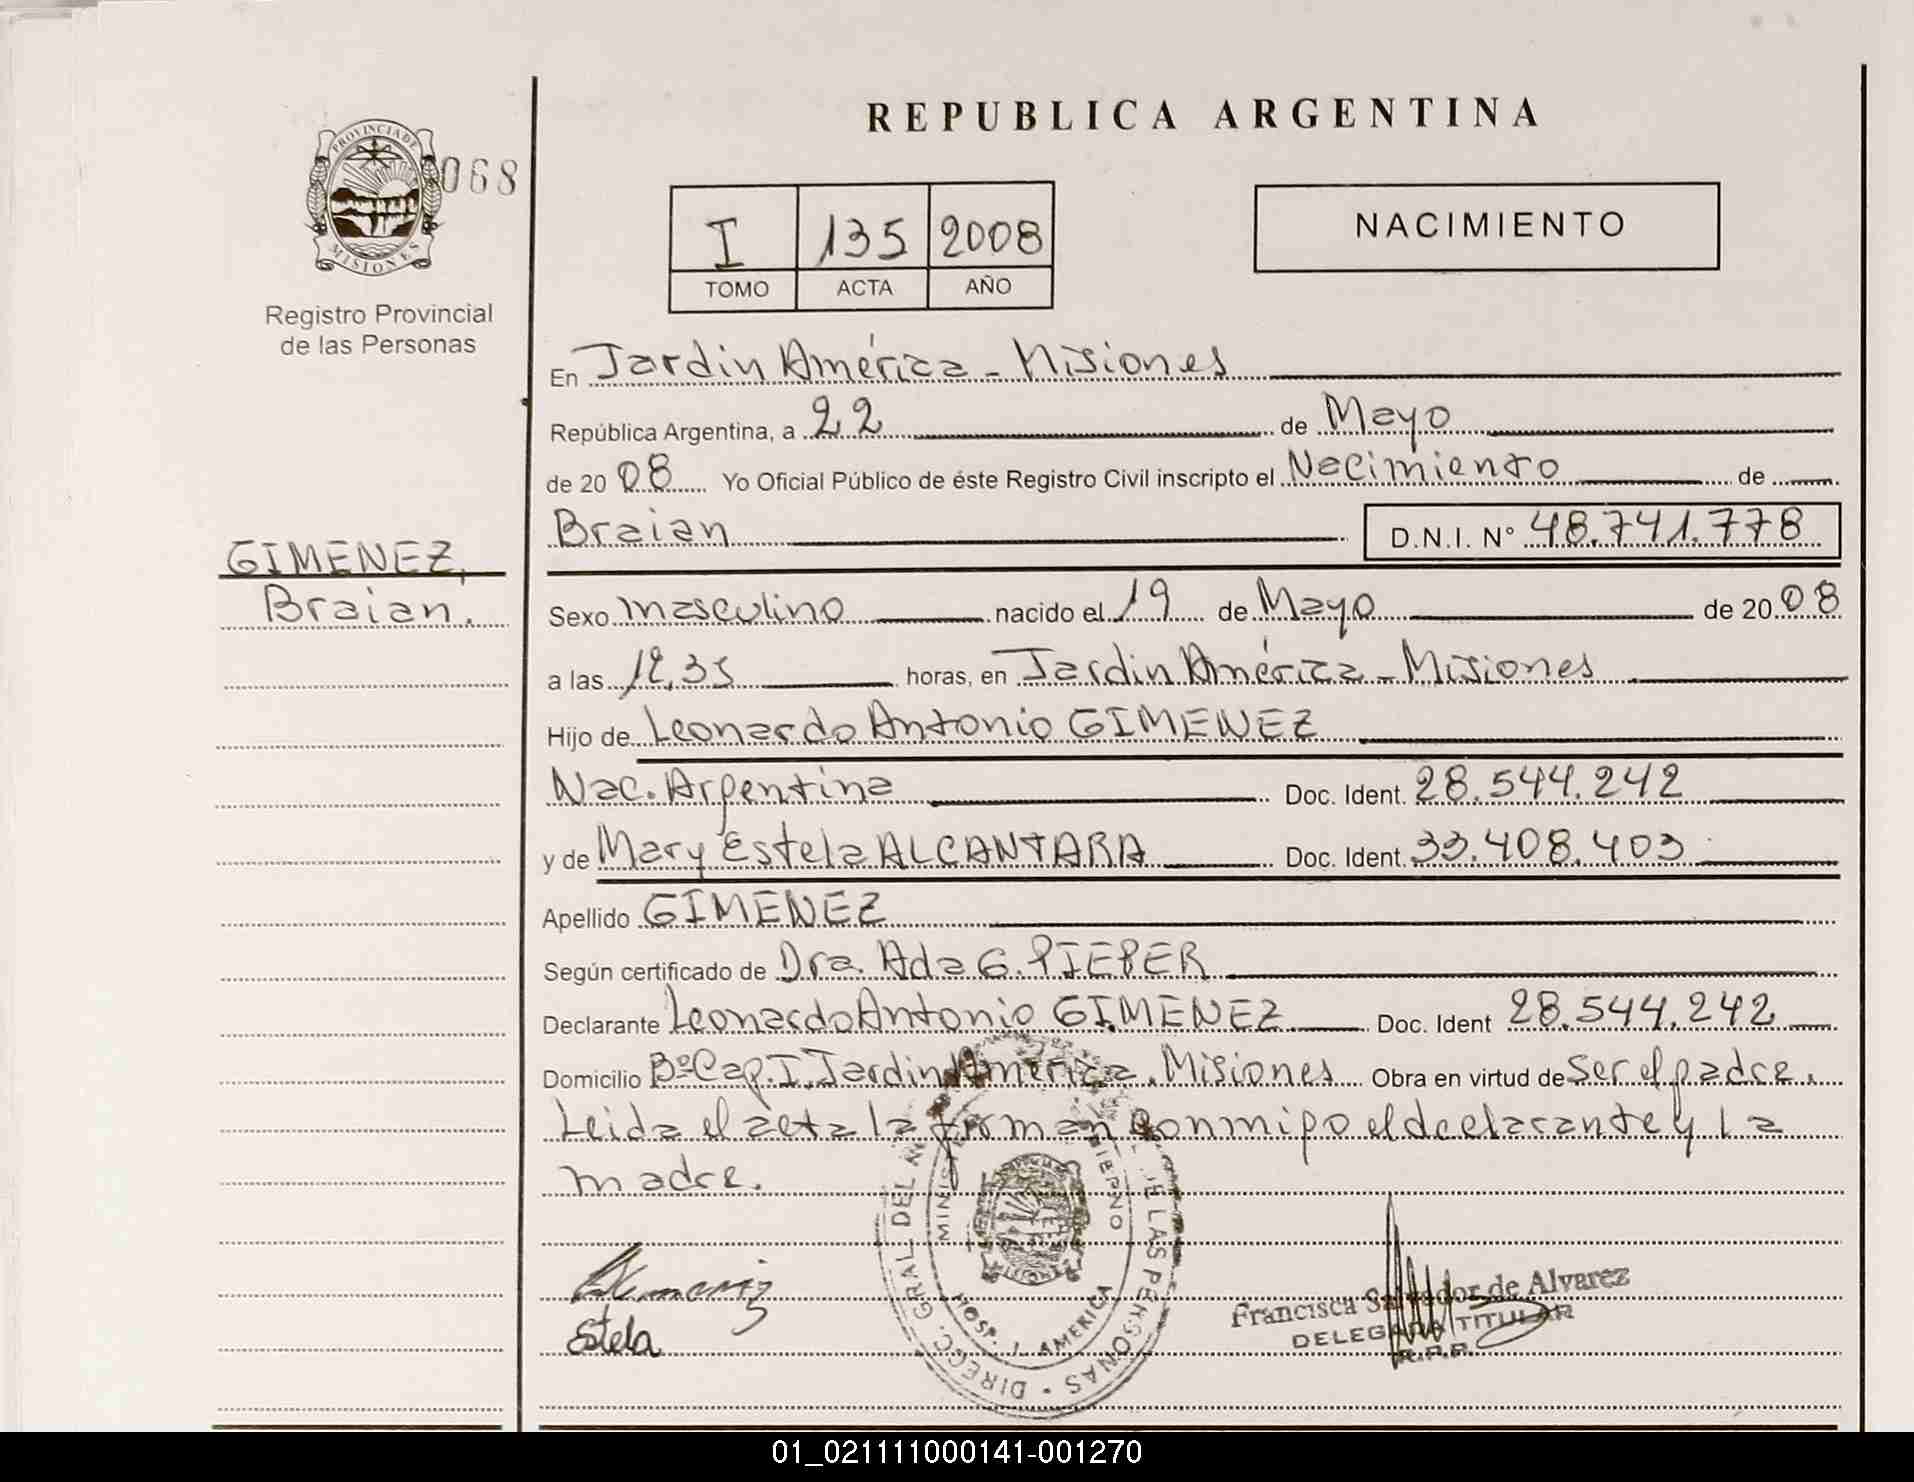 REPUBLICA ARGENTINA
PROVINCIA DE
MISIONES
068
Registro Provincial
de las Personas
I 135 2008
TOMO ACTA AÑO
NACIMIENTO
GIMENEZ,
Braian.
En Jardin América - Misiones
República Argentina, a 22 de Mayo
de 20 08 Yo Oficial Público de éste Registro Civil inscripto el Nacimiento de
Braian D.N.I. N° 48.741.778
Sexo masculino nacido el 19 de Mayo de 20 08
a las 12,35 horas, en Jardin América - Misiones
Hijo de Leonardo Antonio GIMENEZ
Nac. Argentina Doc. Ident. 28.544.242
y de Mary Estela ALCANTARA Doc. Ident. 33.408.403
Apellido GIMENEZ
Según certificado de Dra. Ada G. PIEPER
Declarante Leonardo Antonio GIMENEZ Doc. Ident 28.544.242
Domicilio Bº Cap. I. Jardin América. Misiones Obra en virtud de ser el padre.
Leida el acta la firman conmigo el declarante y la
madre.
DIRECC. GRAL DEL DE LAS PERSONAS
HOSP. J. AMERICA
Estela
Francisca Salvador de Alvarez
DELEGADA TITULAR
R.P.P.
01_021111000141-001270